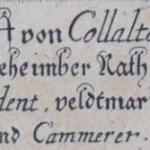 von Collalto
eheimber Rath
dent, veldtmar
nd Cammerer.